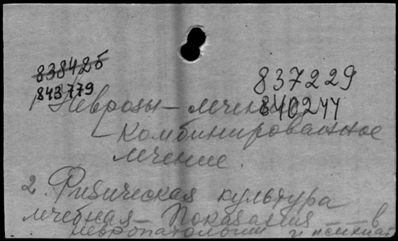 838426
843779
837229
840244
1 Неврозы – лечение
– комбинированное
лечение.
2. Физическая культура
лечебная – Показания – в
невропатологии и психиат